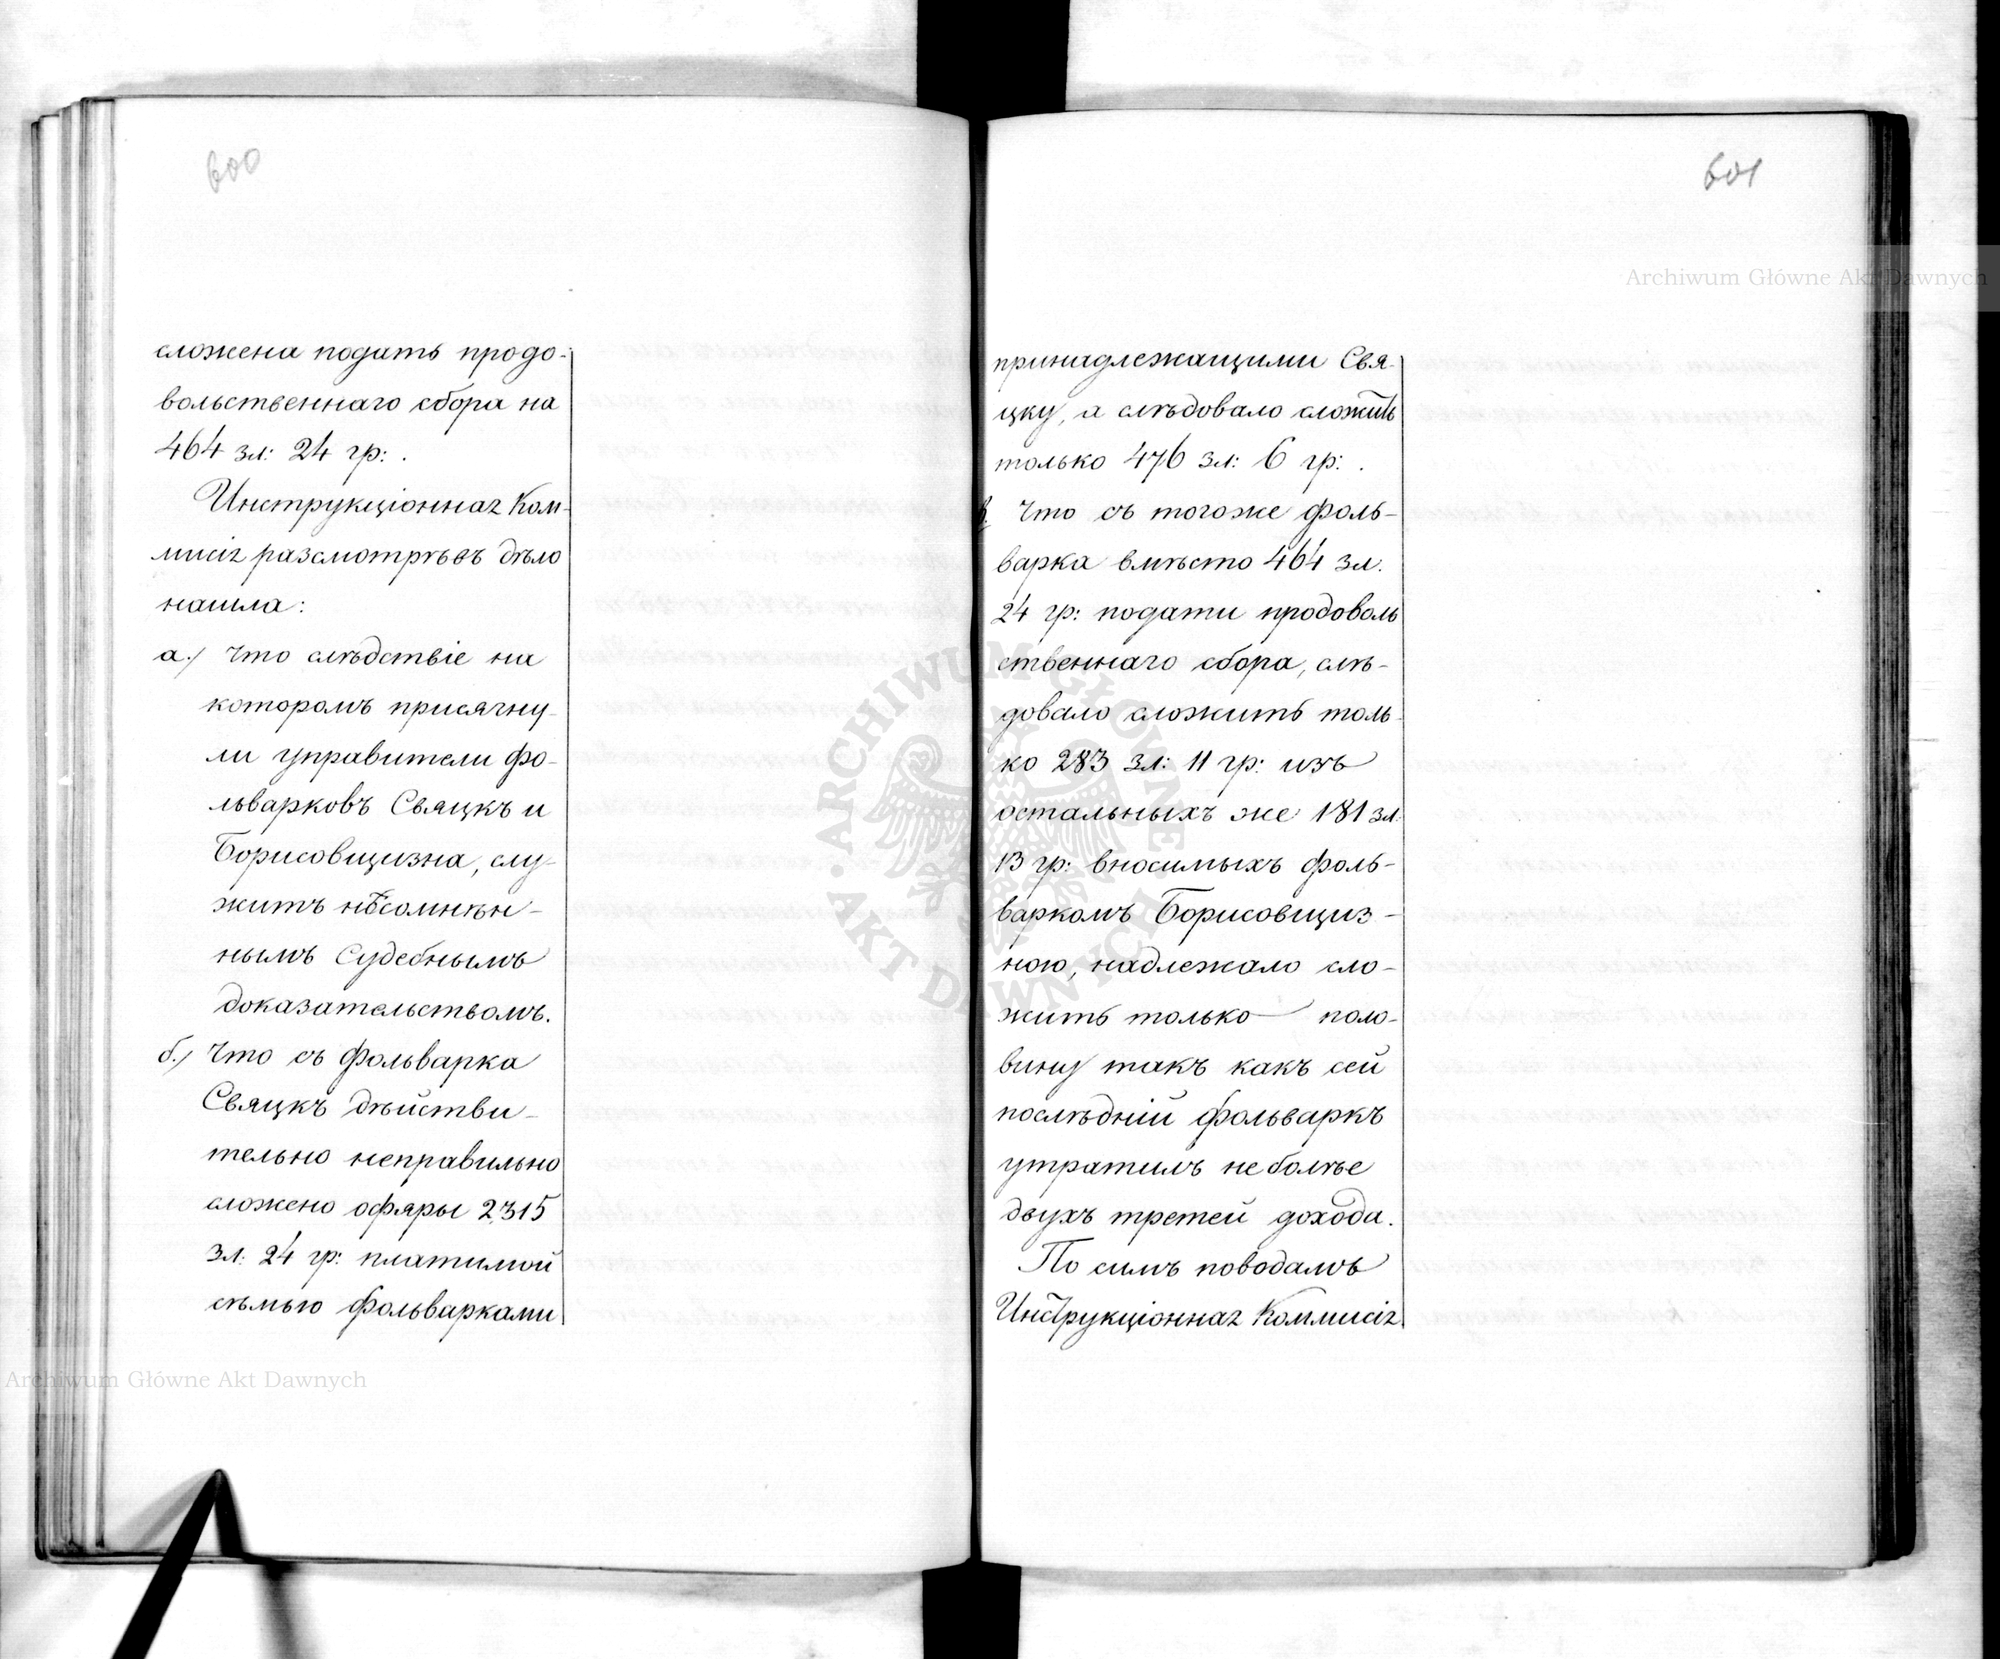 600
сложена подать продо-
вольственнаго сбора на
464 зл: 24 гр: .
Инструкціонная Ком-
мисія разсмотрѣвъ дѣло
нашла:
а./ Что слѣдствіе на
которомъ присягну-
ли управители фо-
льварковъ Свяцкъ и
Борисовщизна, слу-
житъ несомнѣн-
нымъ судебнымъ
доказательствомъ.
б./ Что съ фольварка
Свяцкъ дѣйстви-
тельно неправильно
сложено офяры 2315
зл: 24 гр: платимой
сѣмью фольварками
601
принадлежащими Свя-
цку, а слѣдовало сложить
только 476 зл: 6 гр: .
в. Что съ тогоже фоль-
варка вмѣсто 464 зл.
24 гр: подати продоволь
ственнаго сбора, слѣ-
довало сложить толь-
ко 283 зл: 11 гр: изъ
остальныхъ же 181 зл.
13 гр: вносимыхъ фоль-
варкомъ Борисовщиз-
ною, надлежало сло-
жить только поло-
вину такъ какъ сей
послѣдній фольваркъ
утратилъ не болѣе
двухъ третей дохода.
По симъ поводамъ
Инструкціонная Коммисія
Archiwum Główne Akt Dawnych
Archiwum Główne Akt Dawnych
ARCHIWUM GŁÓWNE AKT DAWNYCH